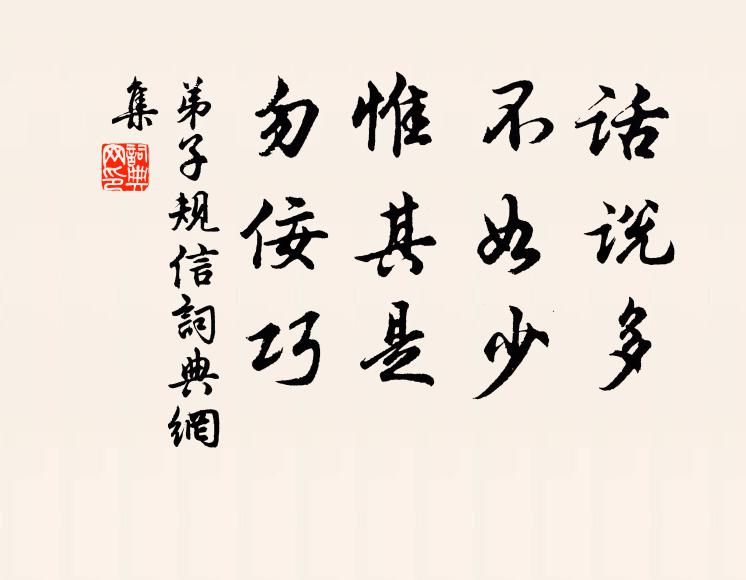 话说多
不如少
惟其是
勿佞巧
弟子规信詞典網
集
詞典
网印